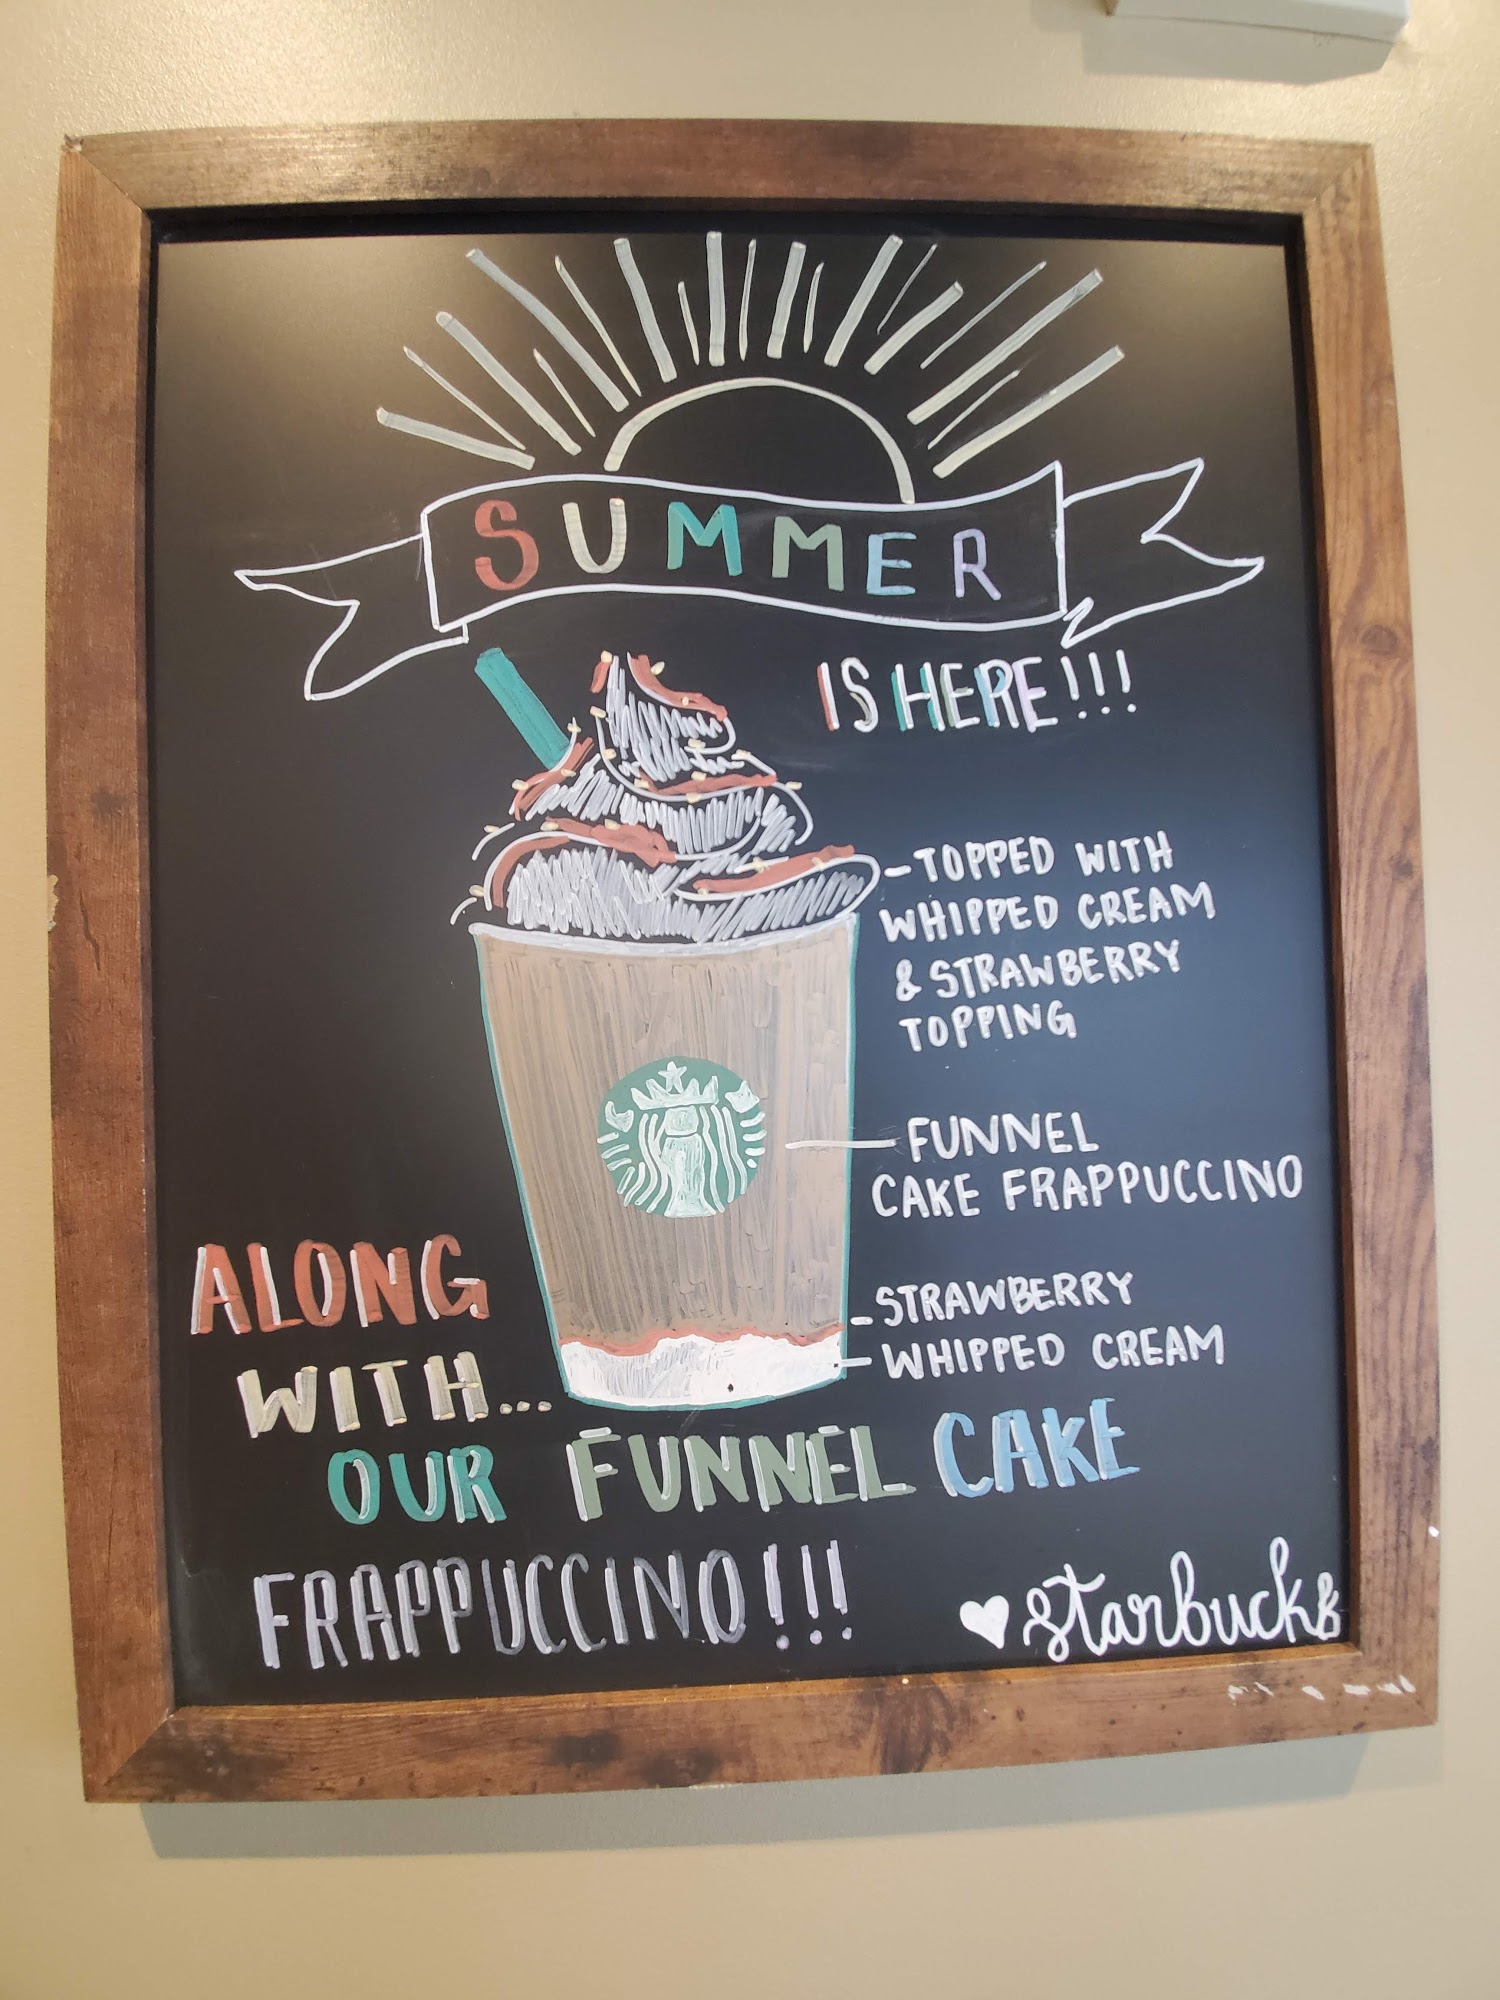 SUMMER
IS HERE!!!
-TOPPED WITH
WHIPPED CREAM
& STRAWBERRY
TOPPING
FUNNEL
CAKE FRAPPUCCINO
-STRAWBERRY
-WHIPPED CREAM
ALONG
WITH...
OUR FUNNEL CAKE
FRAPPUCCINO!!!
♥ starbucks